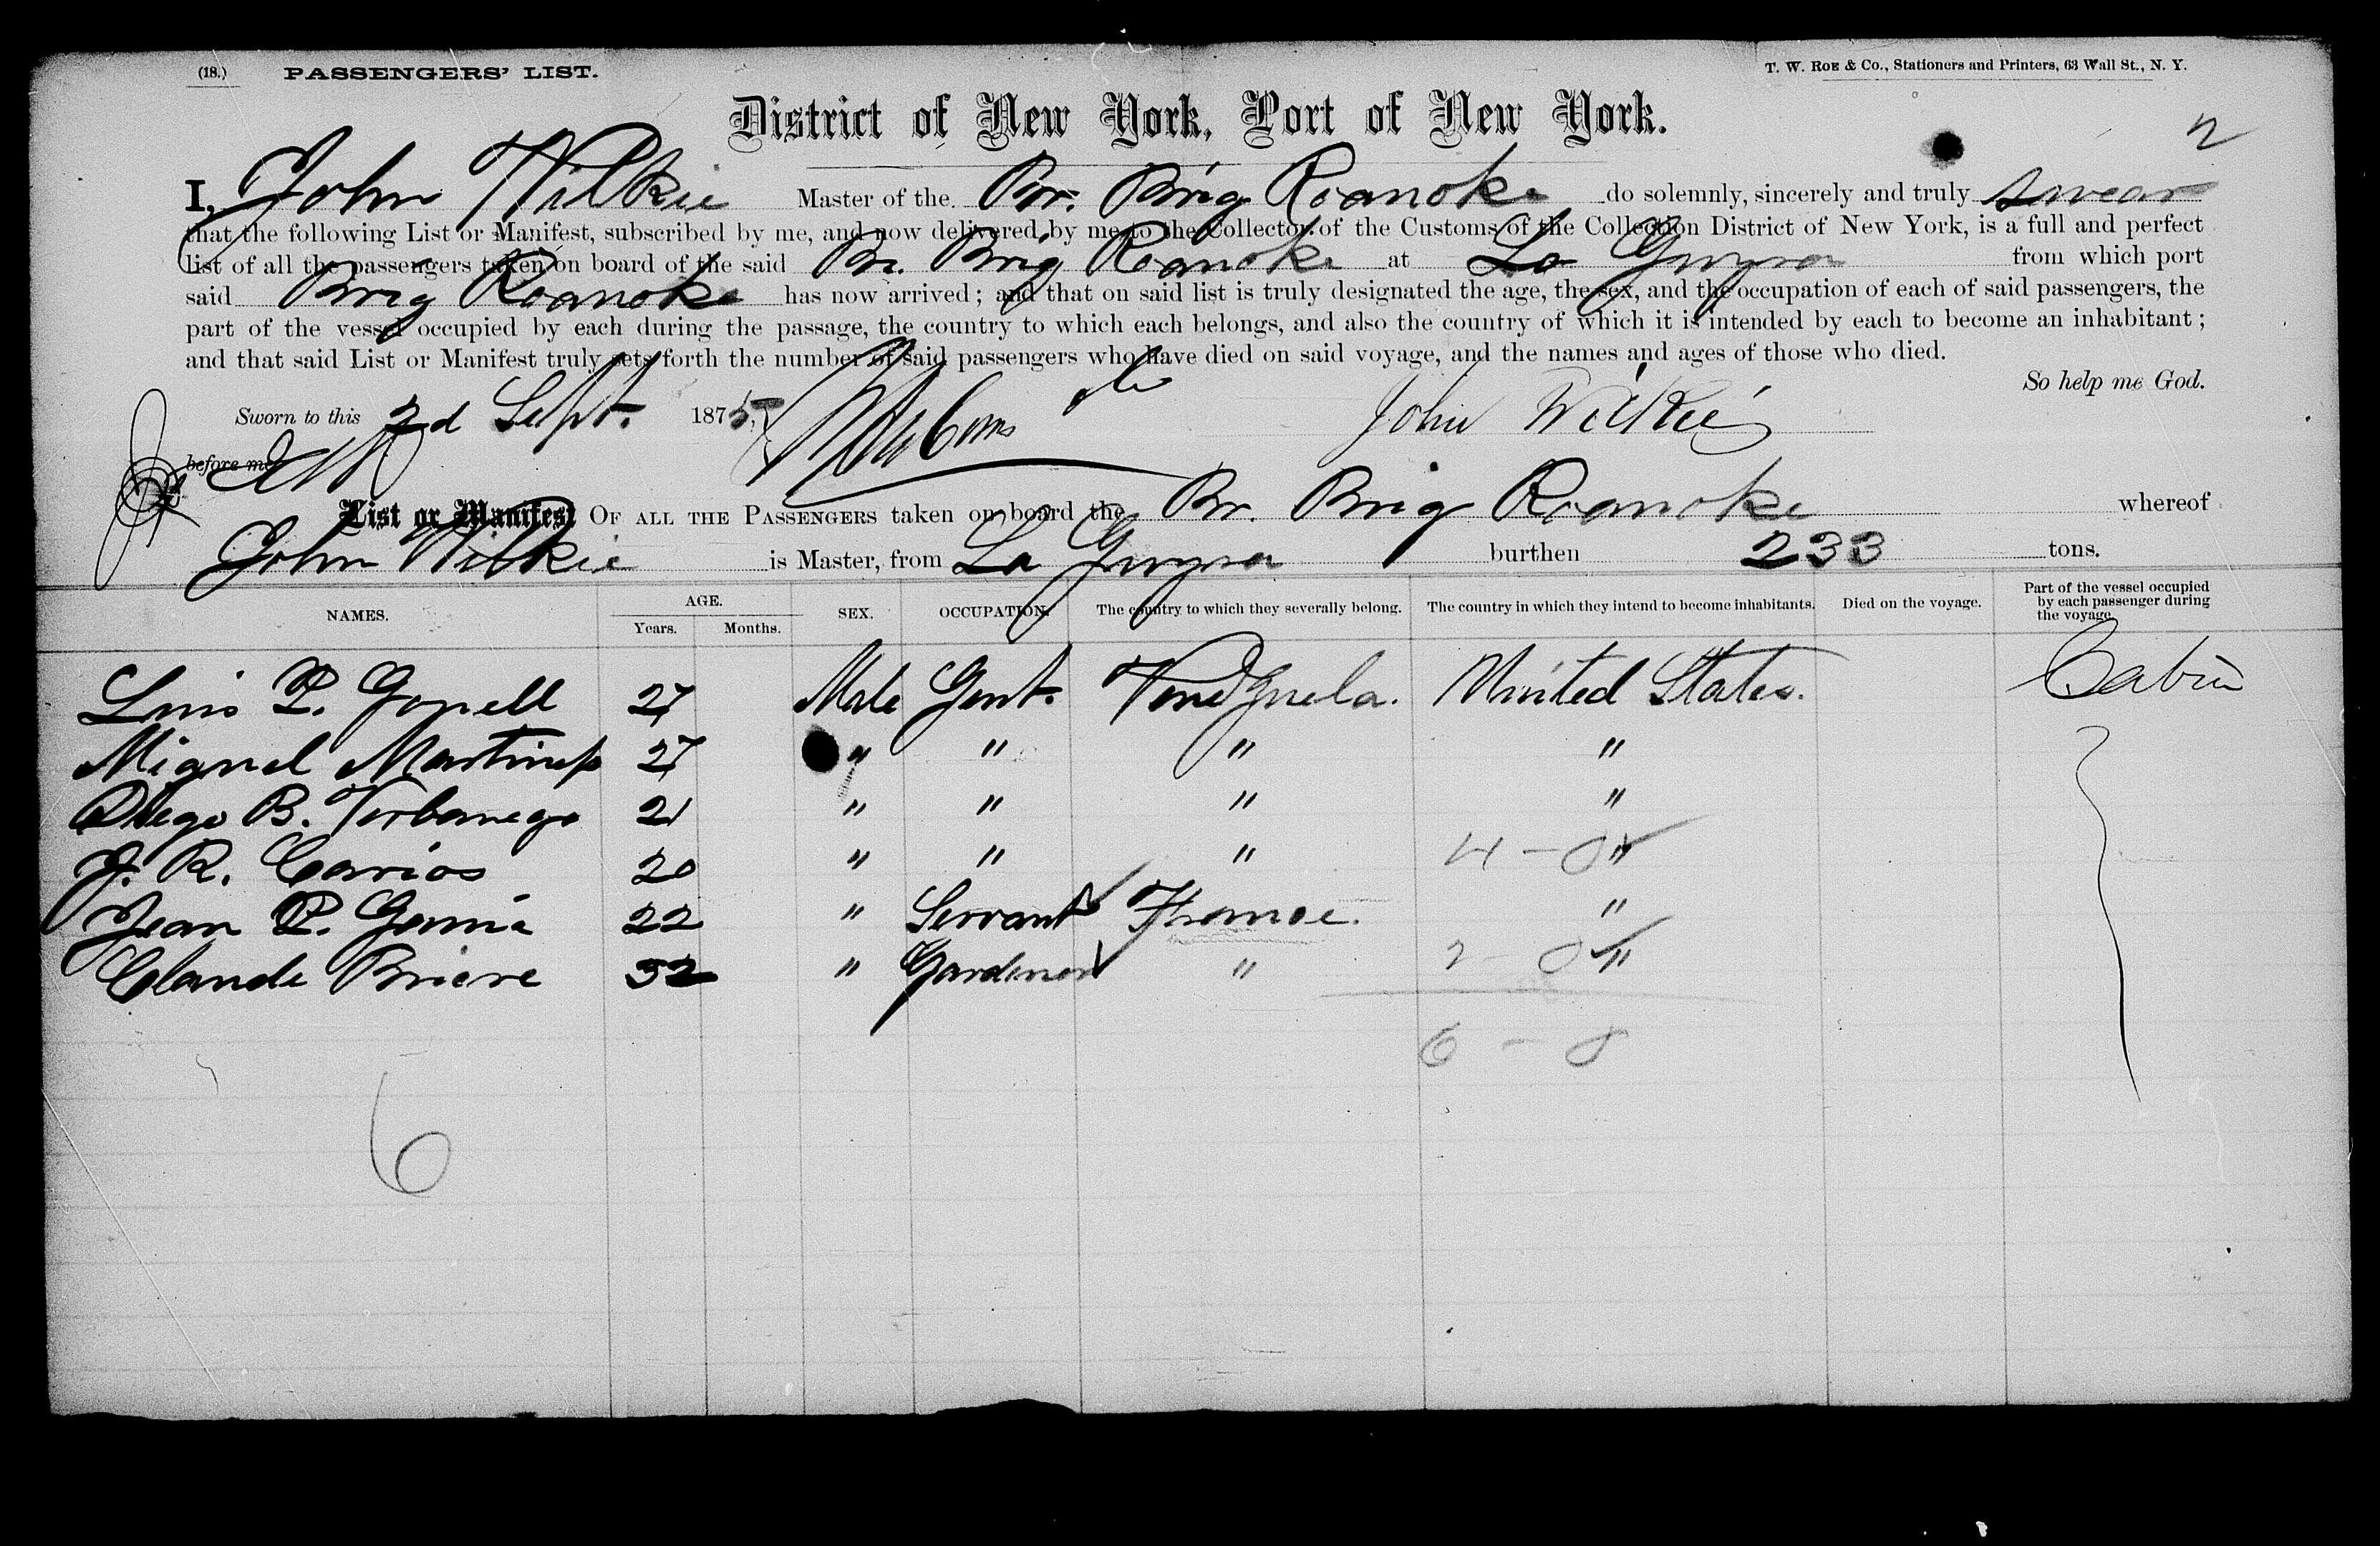 (18.) PASSENGERS' LIST. T. W. ROE & Co., Stationers and Printers, 63 Wall St., N. Y.
District of New York, Port of New York.
2
I, John Wilkie Master of the Br. Brig Roanoke do solemnly, sincerely and truly swear
that the following List or Manifest, subscribed by me, and now delivered by me to the Collector of the Customs of the Collection District of New York, is a full and perfect
list of all the passengers taken on board of the said Br. Brig Roanoke at La Guyra from which port
said Brig Roanoke has now arrived; and that on said list is truly designated the age, the sex, and the occupation of each of said passengers, the
part of the vessel occupied by each during the passage, the country to which each belongs, and also the country of which it is intended by each to become an inhabitant;
and that said List or Manifest truly sets forth the number of said passengers who have died on said voyage, and the names and ages of those who died.
So help me God.
Sworn to this 2d Sept. 1875, John Wilkie
before me
List or Manifest OF ALL THE PASSENGERS taken on board the Br. Brig Roanoke whereof
John Wilkie is Master, from La Guyra burthen 233 tons.
NAMES. AGE. Years. Months. SEX. OCCUPATION. The country to which they severally belong. The country in which they intend to become inhabitants. Died on the voyage. Part of the vessel occupied by each passenger during the voyage.
Luis P. Gonell 27 Male Gent. Venezuela. United States. Cabin
Miguel Martinez 27 " " " "
Diego B. Urbanego 21 " " " "
J. R. Carios 20 " " " 4 - 0 "
Jean P. 22 " Servant France. "
Claude Briere 32 " Gardener " 2 - 0 "
6 - 0
6